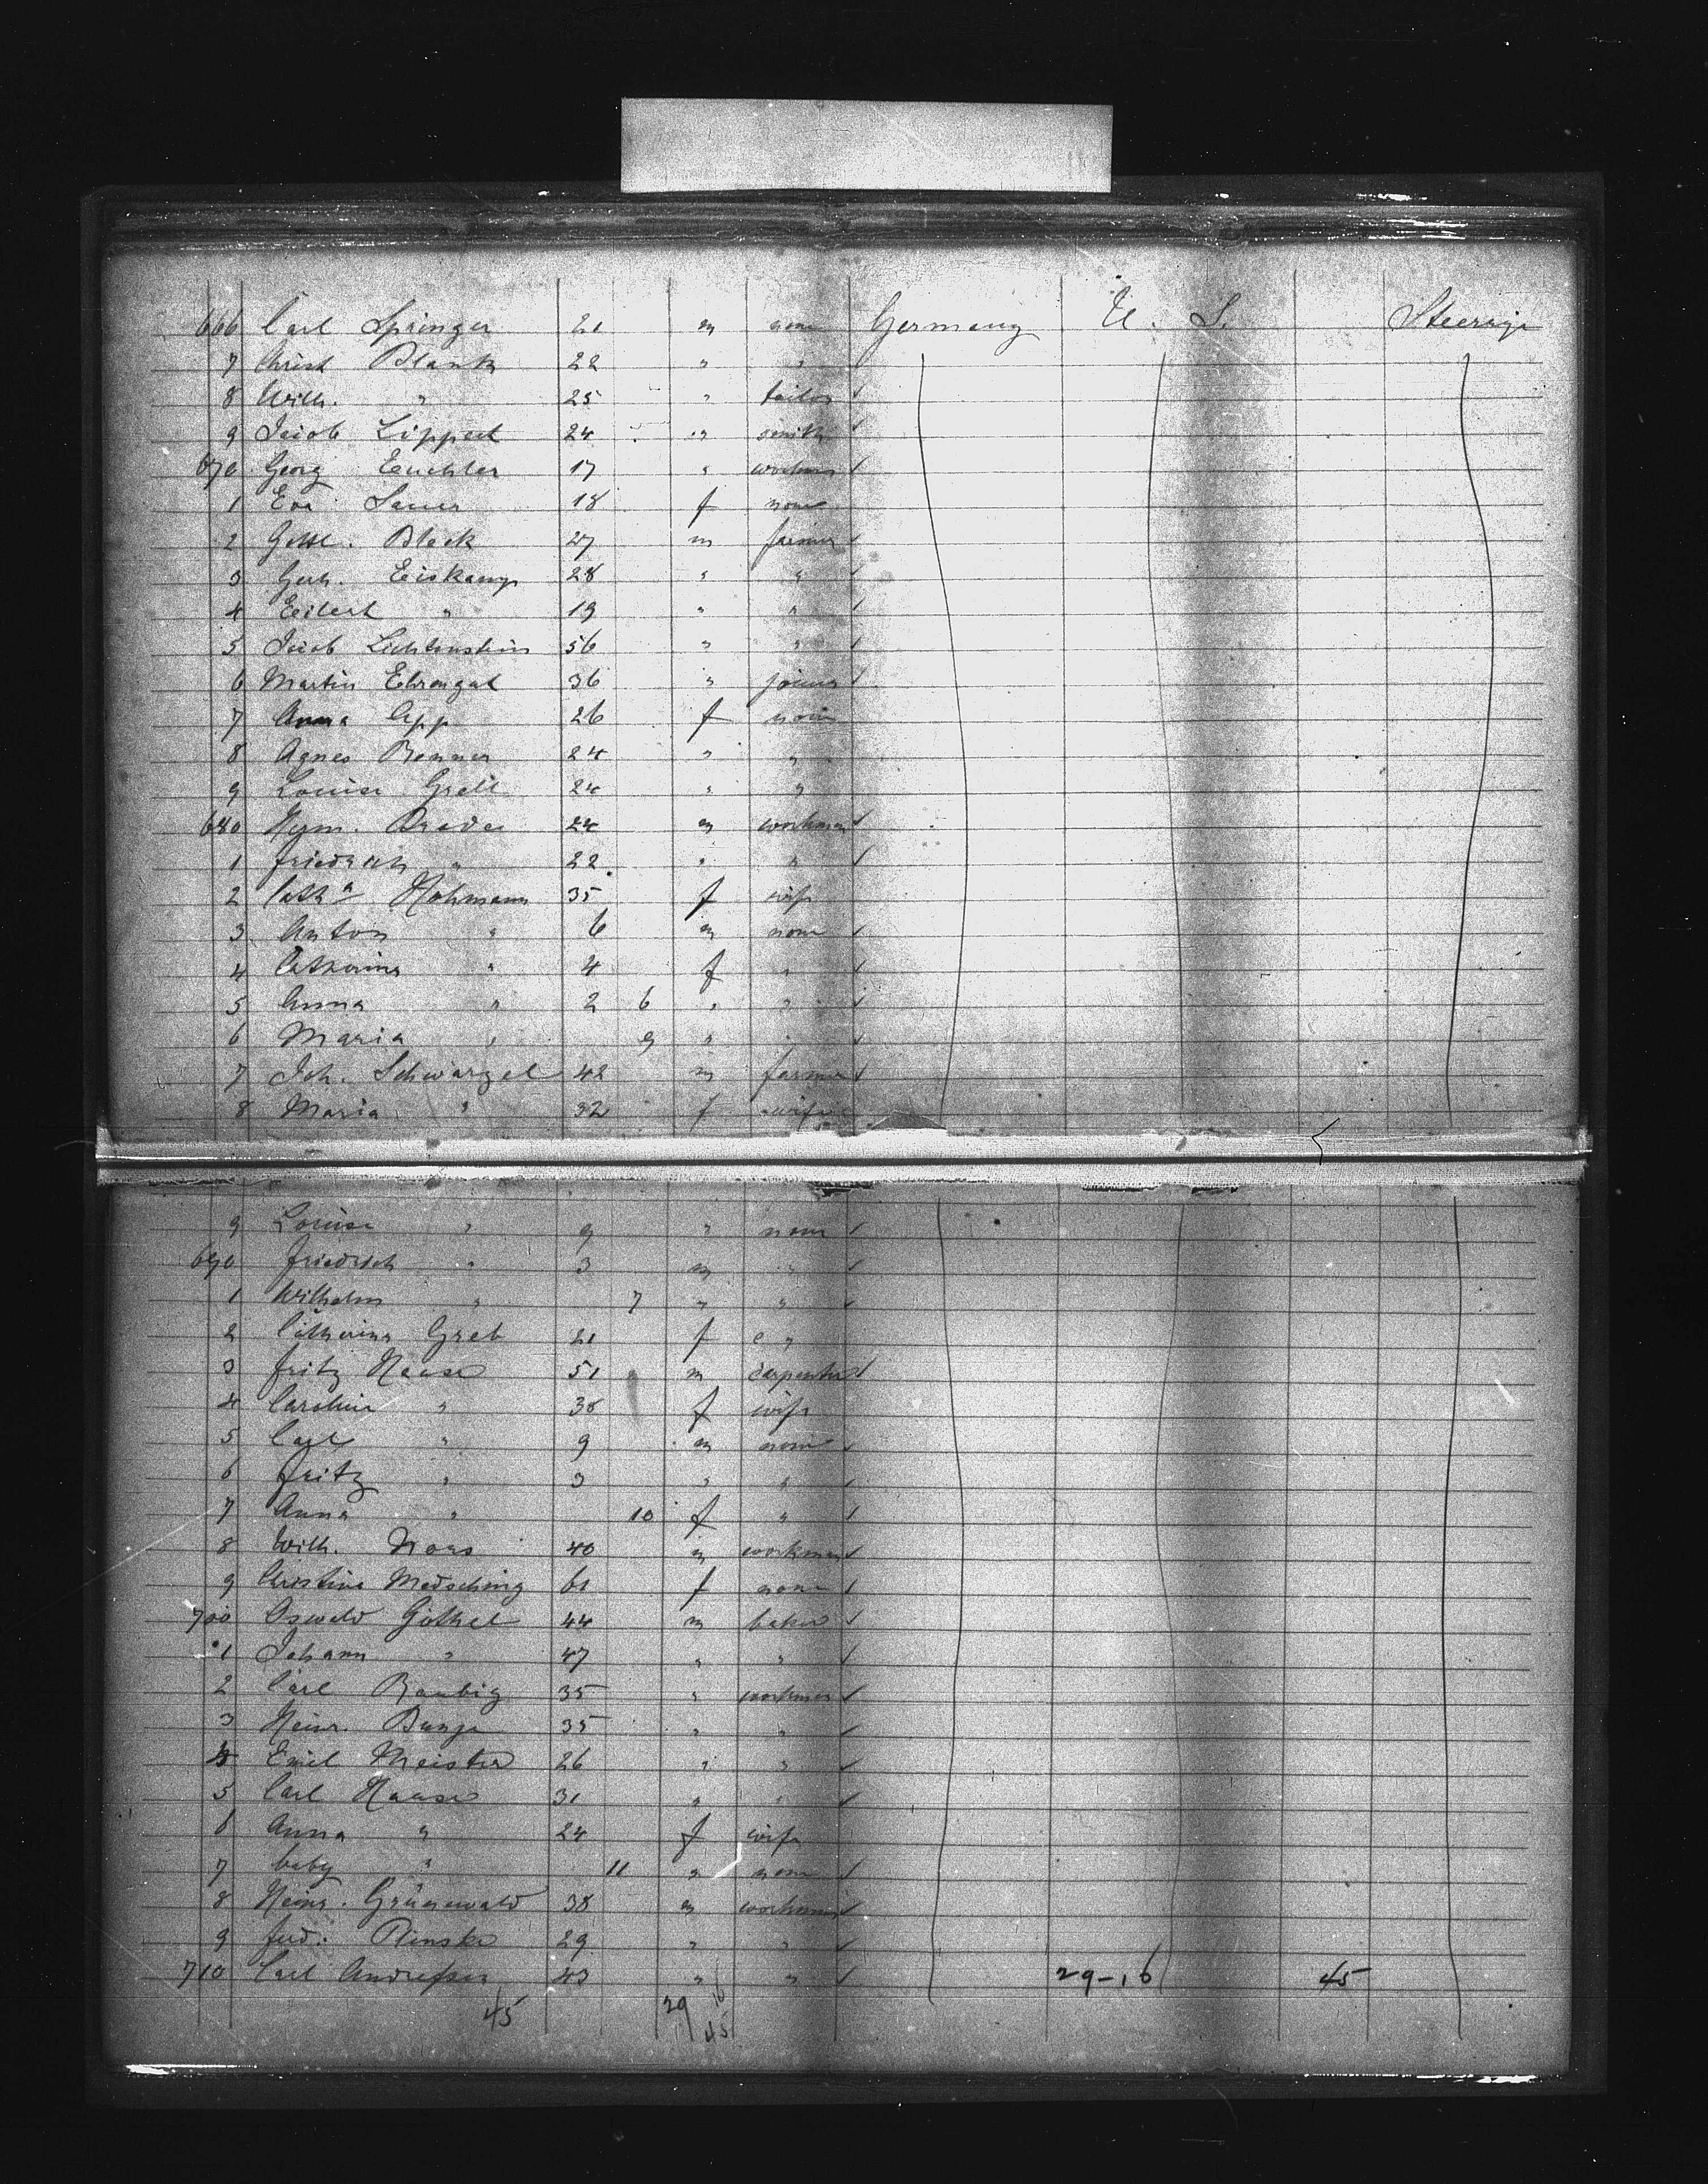 666 Carl Springer 21 m none Germany U. S. Steerage
7 Christ Blank 22 " "
8 Wilh. " 25 " tailor ✓
9 Jacob Lippert 24 " smith ✓
670 Georg Euchler 17 " workman ✓
1 Eva Sauer 18 f none
2 Gottl. Bleck 27 m farmer ✓
3 Gerh. Eiskamp 28 " " ✓
4 Eilert " 19 " " ✓
5 Jacob Lichtenstein 56 " " ✓
6 Martin 36 " joiner ✓
7 Anna Epp 26 f none
8 Agnes Renner 24 " "
9 Louise Grell 24 " "
680 Herm. 24 m workman ✓
1 Friedrich " 22 " " ✓
2 Cathª Hohmann 35 f wife
3 Anton " 6 m none ✓
4 Catharina " 4 f " ✓
5 Anna " 2 6 " " ✓
6 Maria " 9 " " ✓
7 Joh. Schwarzel 42 m farmer ✓
8 Maria " 32 f wife
9 Louise " 9 " none ✓
690 Friedrich " 3 m " ✓
1 Wilhelm " 7 " " ✓
2 Catharina Greb 21 f "
3 Fritz Haase 51 m carpenter ✓
4 Caroline " 38 f wife
5 Carl " 9 m none ✓
6 Fritz " 3 " " ✓
7 Anna " 10 f " ✓
8 Wilh. 40 m workman ✓
9 Christine Medsching 61 f none ✓
700 Oswald Göthel 44 m baker ✓
1 Johann " 47 " " ✓
2 Carl Raubig 35 " workman ✓
3 Heinr. Bunge 35 " " ✓
4 Emil Meister 26 " " ✓
5 Carl Haase 31 " " ✓
6 Anna " 24 f wife
7 baby " 11 " none ✓
8 Heinr. Grünewald 38 m workman ✓
9 Ferd. 29 " " ✓
710 Carl Andressen 43 " " ✓ 29-16 45
45 29 16
45